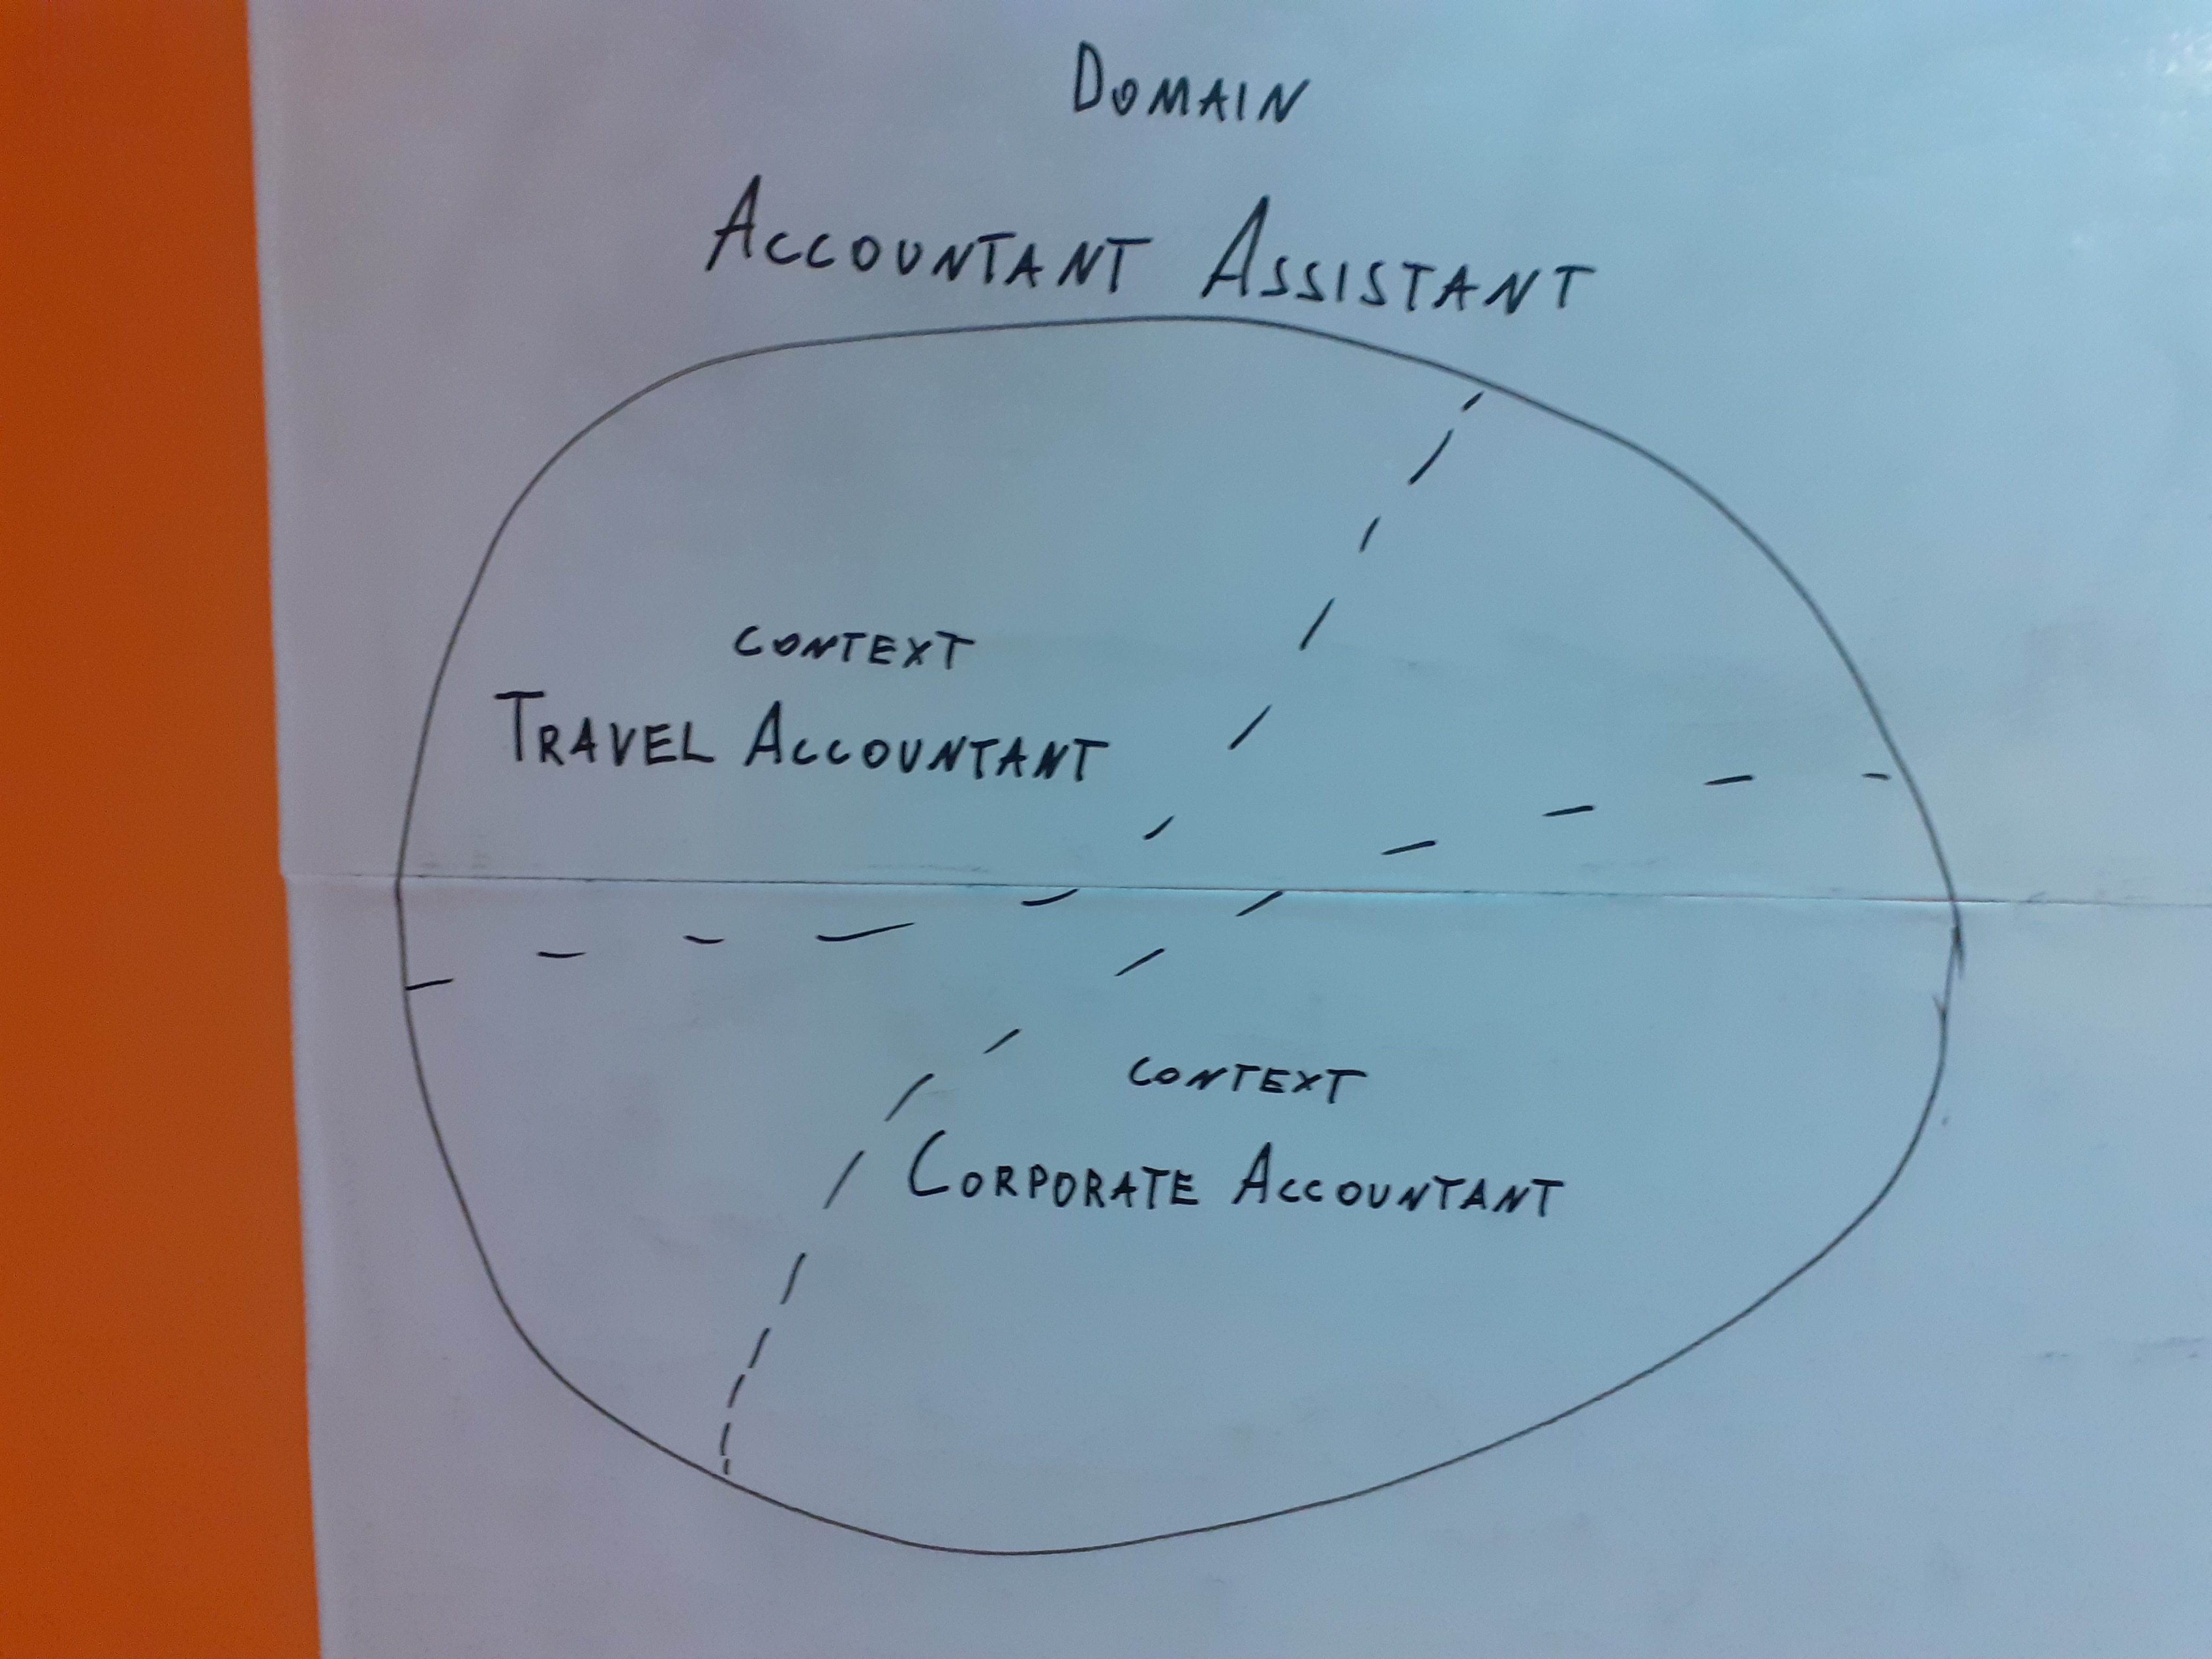 DOMAIN
ACCOUNTANT ASSISTANT
CONTEXT
TRAVEL ACCOUNTANT
CONTEXT
CORPORATE ACCOUNTANT